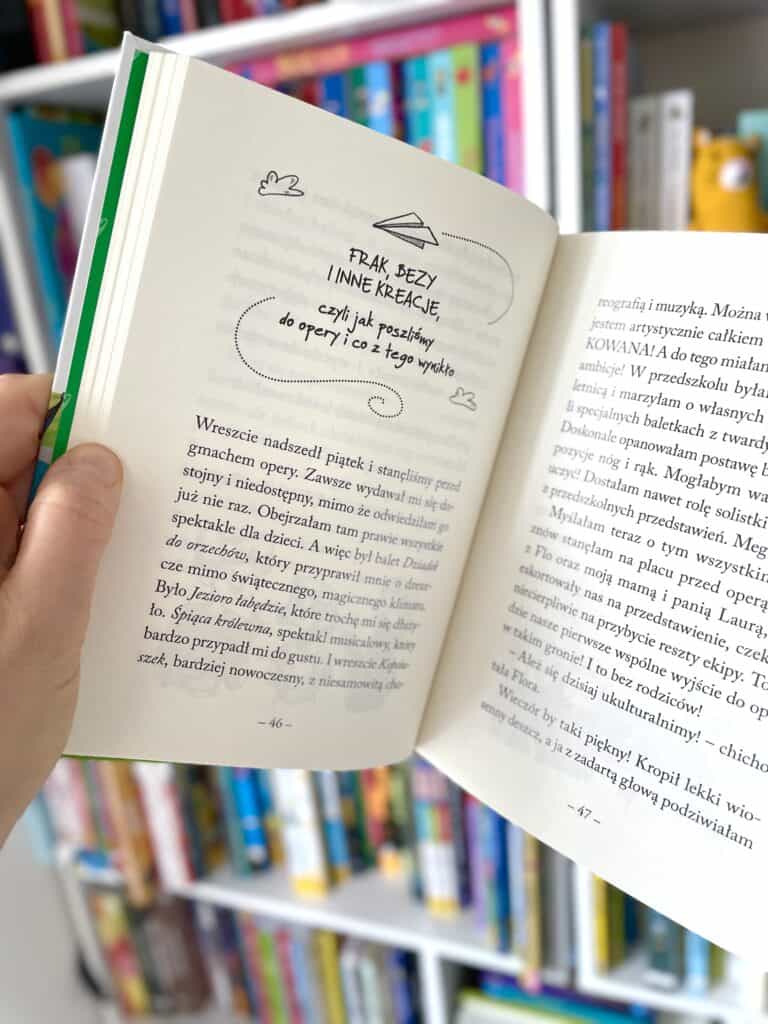 FRAK, BEZY
I INNE KREACJE,
czyli jak poszliśmy
do opery i co z tego wynikło
Wreszcie nadszedł piątek i stanęliśmy przed
gmachem opery. Zawsze wydawał mi się do-
stojny i niedostępny, mimo że odwiedziłam go
już nie raz. Obejrzałam tam prawie wszystkie
spektakle dla dzieci. A więc był balet Dziadek
do orzechów, który przyprawił mnie o dresz-
cze mimo świątecznego, magicznego klimatu.
Było Jezioro łabędzie, które trochę mi się dłuży-
ło. Śpiąca królewna, spektakl musicalowy, który
bardzo przypadł mi do gustu. I wreszcie Kopciu-
szek, bardziej nowoczesny, z niesamowitą cho-
– 46 –
reografią i muzyką. Można
jestem artystycznie całkiem
KOWANA! A do tego miałam
ambicje! W przedszkolu była
letnicą i marzyłam o własnych
li specjalnych baletkach z twardy
Doskonale opanowałam postawę b
pozycje nóg i rąk. Mogłabym wa
uczyć! Dostałam nawet rolę solistki
z przedszkolnych przedstawień. Meg
Myślałam teraz o tym wszystkim
znów stanęłam na placu przed operą
z Flo oraz moją mamą i panią Laurą,
eskortowały nas na przedstawienie, czek
niecierpliwie na przybycie reszty ekipy. To
dzie nasze pierwsze wspólne wyjście do op
w takim gronie! I to bez rodziców!
– Ależ się dzisiaj ukulturalnimy! – chicho
tała Flora.
Wieczór by taki piękny! Kropił lekki wio-
senny deszcz, a ja z zadartą głową podziwiałam
– 47 –